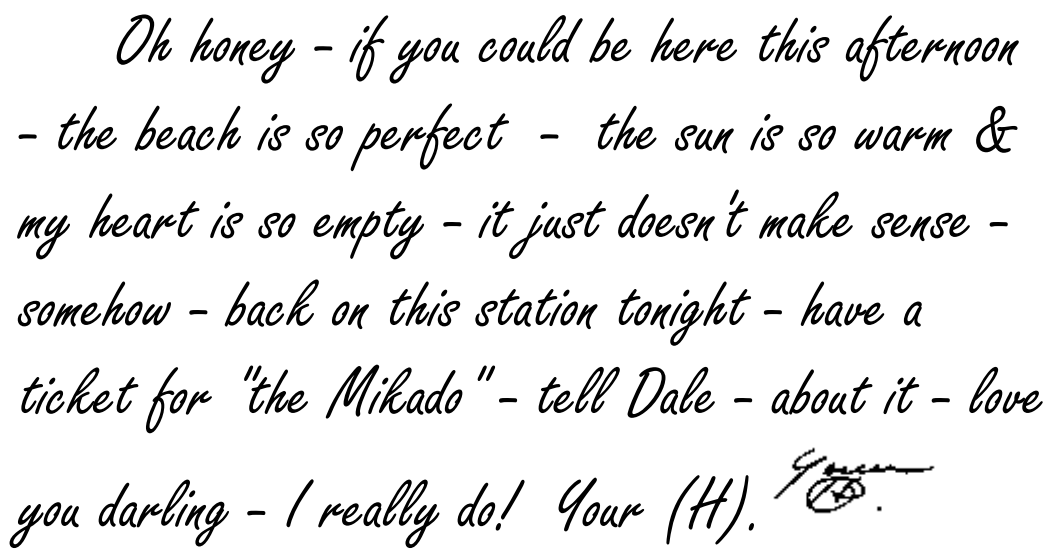 Oh honey - if you could be here this afternoon
- the beach is so perfect - the sun is so warm &
my heart is so empty - it just doesn't make sense -
somehow - back on this station tonight - have a
ticket for "the Mikado" - tell Dale - about it - love
you darling - I really do! Your (H).